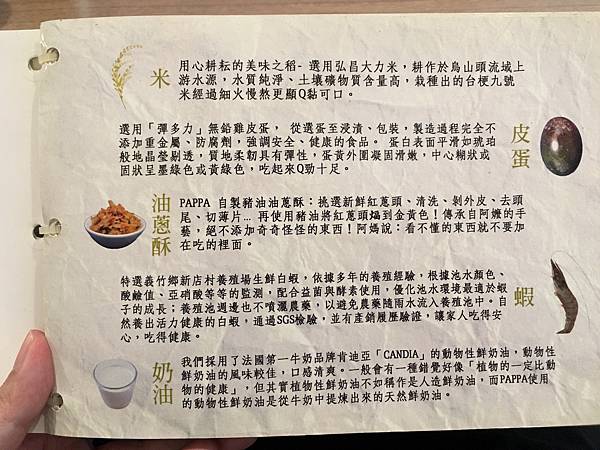 米
用心耕耘的美味之稻- 選用弘昌大力米，耕作於烏山頭流域上
游水源，水質純淨、土壤礦物質含量高，栽種出的台梗九號
米經過細火慢熬更顯Q黏可口。
皮蛋
選用「彈多力」無鉛雞皮蛋， 從選蛋至浸漬、包裝，製造過程完全不
添加重金屬、防腐劑，強調安全、健康的食品。 蛋白表面平滑如琥珀
般地晶瑩剔透，質地柔韌具有彈性，蛋黃外圍凝固滑嫩，中心糊狀或
固狀呈墨綠色或黃綠色，吃起來Q勁十足。
油蔥酥
PAPPA 自製豬油油蔥酥：挑選新鮮紅蔥頭、清洗、剝外皮、去頭
尾、切薄片... 再使用豬油將紅蔥頭煸到金黃色！傳承自阿嬤的手
藝，絕不添加奇奇怪怪的東西！阿媽說：看不懂的東西就不要加
在吃的裡面。
蝦
特選義竹鄉新店村養殖場生鮮白蝦，依據多年的養殖經驗，根據池水顏色、
酸鹼值、亞硝酸等等的監測，配合益菌與酵素使用，優化池水環境最適於蝦
子的成長；養殖池週邊也不噴灑農藥，以避免農藥隨雨水流入養殖池中。自
然養出活力健康的白蝦，通過SGS檢驗，並有產銷履歷驗證，讓家人吃得安
心，吃得健康。
奶油
我們採用了法國第一牛奶品牌肯迪亞「CANDIA」的動物性鮮奶油，動物性
鮮奶油的風味較佳，口感清爽。一般會有一種錯覺好像「植物的一定比動
物的健康」，但其實植物性鮮奶油不如稱作是人造鮮奶油，而PAPPA使用
的動物性鮮奶油是從牛奶中提煉出來的天然鮮奶油。